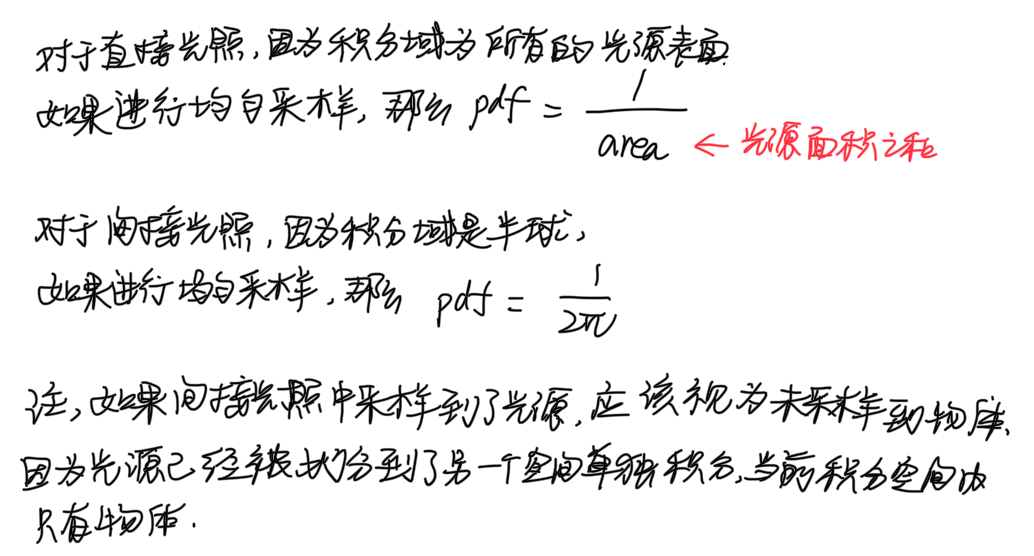 对于直接光照,因为积分域为所有的光源表面.
如果进行均匀采样,那么 pdf = 1/area ← 光源面积之和
对于间接光照,因为积分域是半球,
如果进行均匀采样,那么 pdf = 1/2π
注,如果间接光照中采样到了光源,应该视为未采样到物体,
因为光源已经被划分到了另一个空间单独积分,当前积分空间内
只有物体.